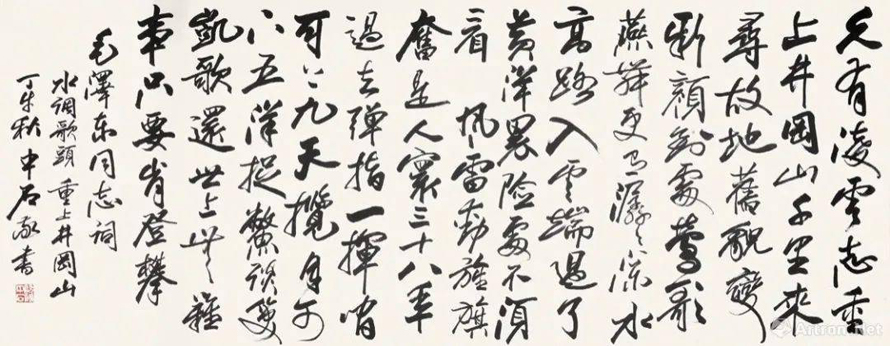 久有凌雲志重
上井岡山千里來
尋故地舊貌變
新顏到處鶯歌
燕舞更有潺〻流水
高路入雲端過了
黃洋界險處不須
看風雷動旌旗
奮是人寰三十八年
過去彈指一揮間
可上九天攬月可
下五洋捉鱉談笑
凱歌還世上無難
事只要肯登攀
毛澤東同志詞
水調歌頭 重上井岡山
秋 中石敬書
Artron.net